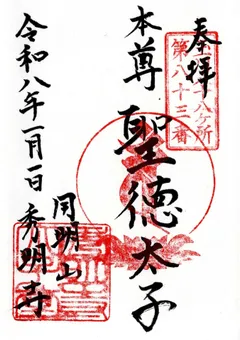 奉拝
八ヶ所
第八十三番
本尊 聖徳太子
月明山
秀明寺
令和八年一月一日